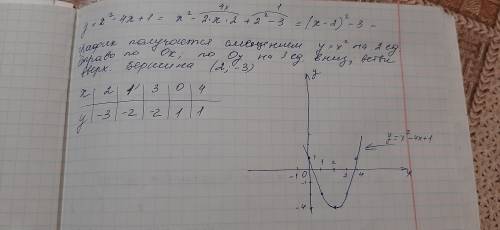 y = x² - 4x + 1 = x² - 2·x·2 + 2² - 3 = (x-2)² - 3 -
4x 1
график получается смещением y = x² на 2 ед.
вправо по Ox, по Oy на 3 ед. вниз, ветви
вверх. вершина (2, -3)
x 2 1 3 0 4
y -3 -2 -2 1 1
y
y = x² - 4x + 1
1
-1 0 1 2 3 4 x
-1
-4